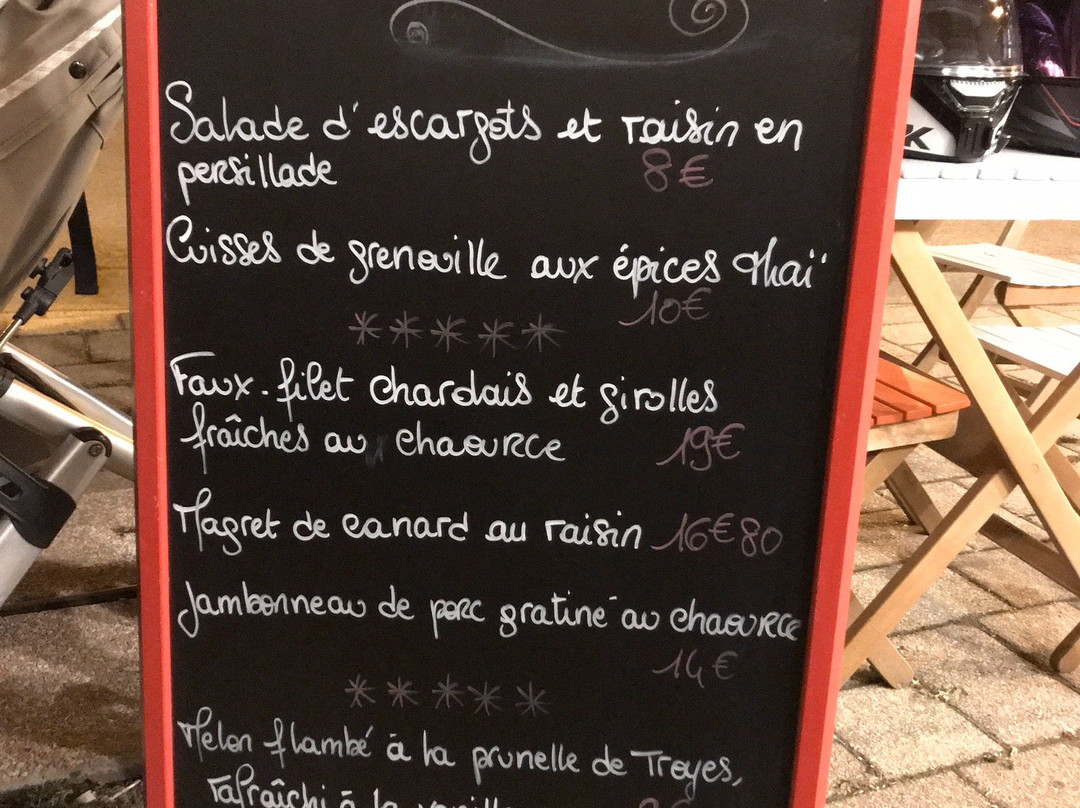 Salade d'escargots et raisin en
persillade 8€
Cuisses de grenouille aux épices thaï
10€
*****
Faux-filet charolais et girolles
fraîches au chaource 19€
Magret de canard au raisin 16€80
Jambonneau de porc gratiné au chaource
14€
*****
Melon flambé à la prunelle de Troyes,
rafraîchi à la vanille